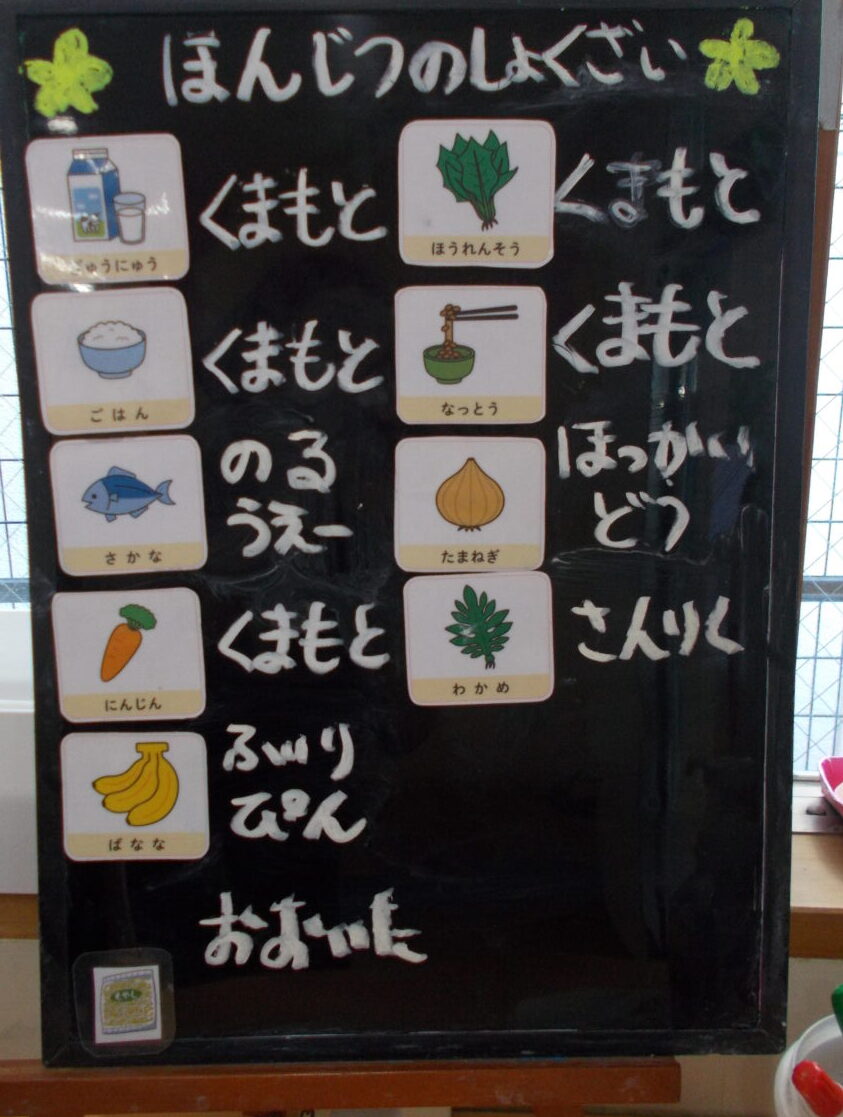 ほんじつのしょくざい
ぎゅうにゅう
くまもと
ごはん
くまもと
さかな
のる
うえー
にんじん
くまもと
ばなな
ふぃり
ぴん
おおいた
ほうれんそう
くまもと
なっとう
くまもと
たまねぎ
ほっかい
どう
わかめ
さんりく